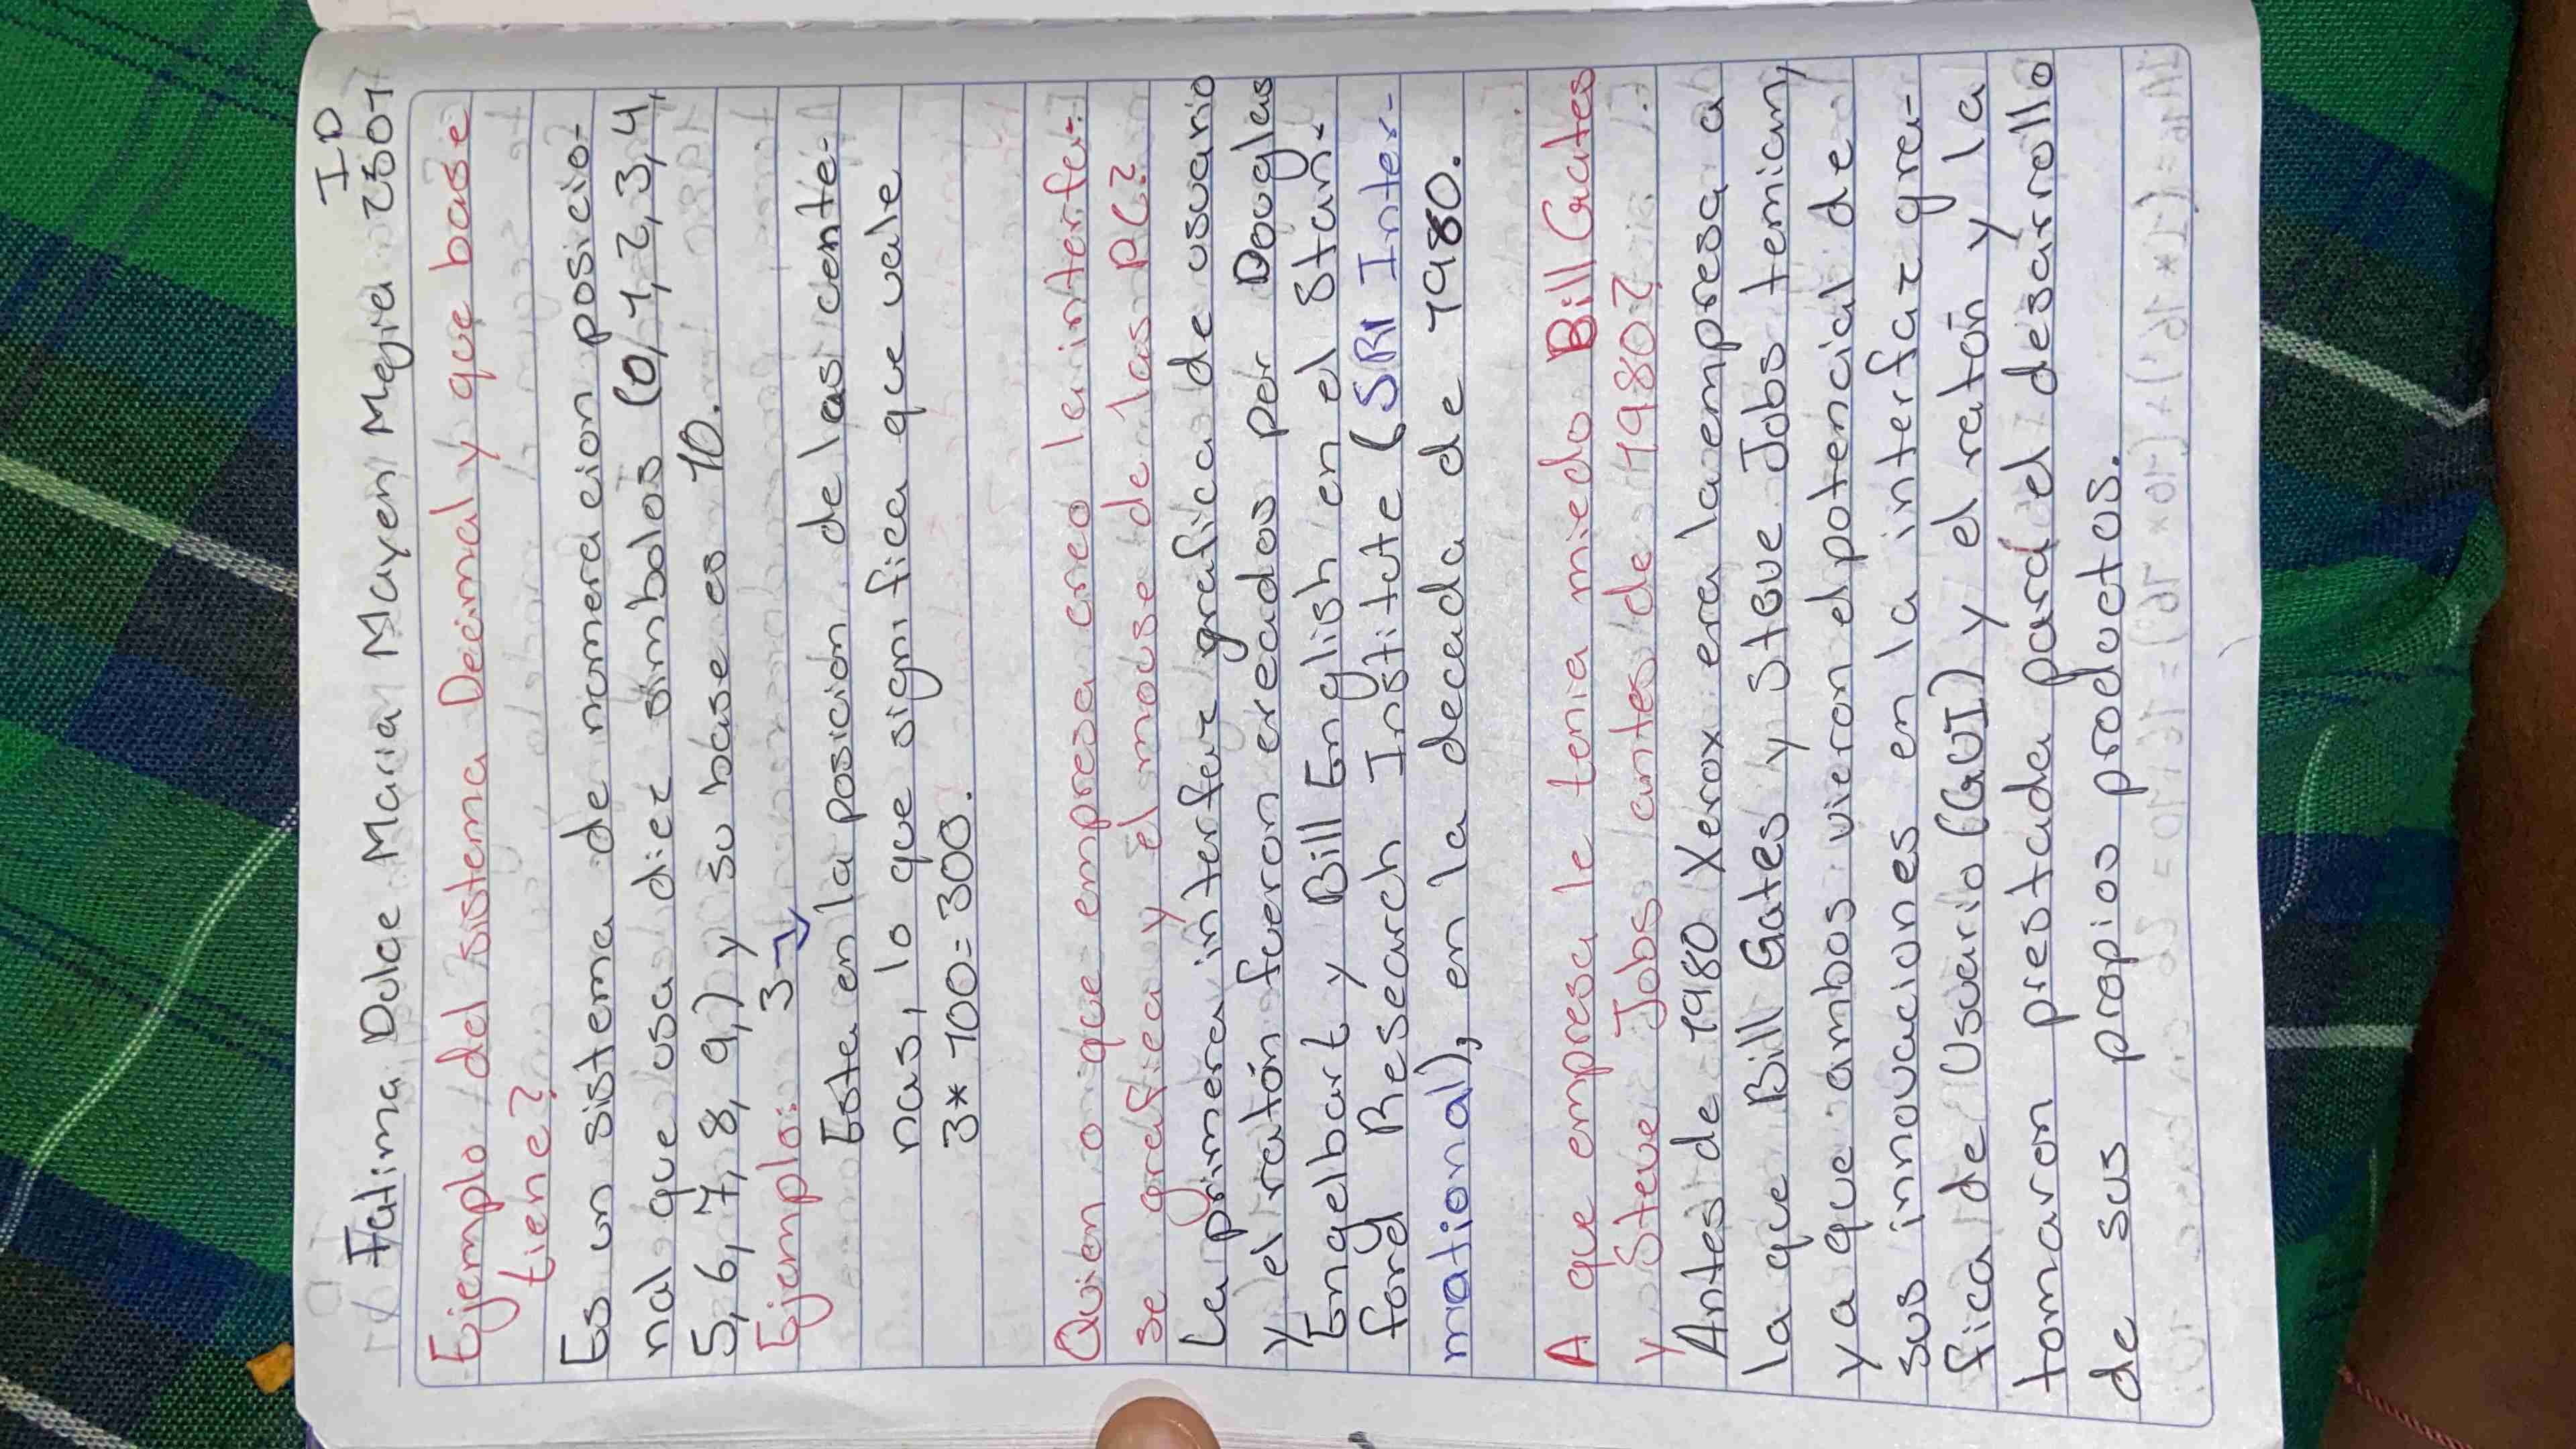 ID
Fatima Dulce Maria Mayen Mejia 23071
Ejemplo del sistema Decimal y que base
tiene?
Es un sistema de numeracion posicio-
nal que usa diez simbolos (0,1,2,3,4,
5,6,7,8,9,) y su base es 10.
Ejemplo: 3→
Esta en la posicion de las cente-
nas, lo que significa que vale
3*100=300.
Quien o que empresa creo la interfa-
se grafica y el mouse de las PC?
La primera interfaz grafica de usuario
y el ratón fueron creados por Douglas
Engelbart y Bill English en el Stan-
ford Research Institute (SRI Inter-
national), en la decada de 1980.
A que empresa le tenia miedo Bill Gates
y Steve Jobs antes de 1980?
Antes de 1980 Xerox era la empresa a
la que Bill Gates y Steve Jobs temian,
ya que ambos vieron el potencial de
sus innovaciones en la interfaz gra-
fica de Usuario (GUI) y el ratón y la
tomaron prestada para el desarrollo
de sus propios productos.